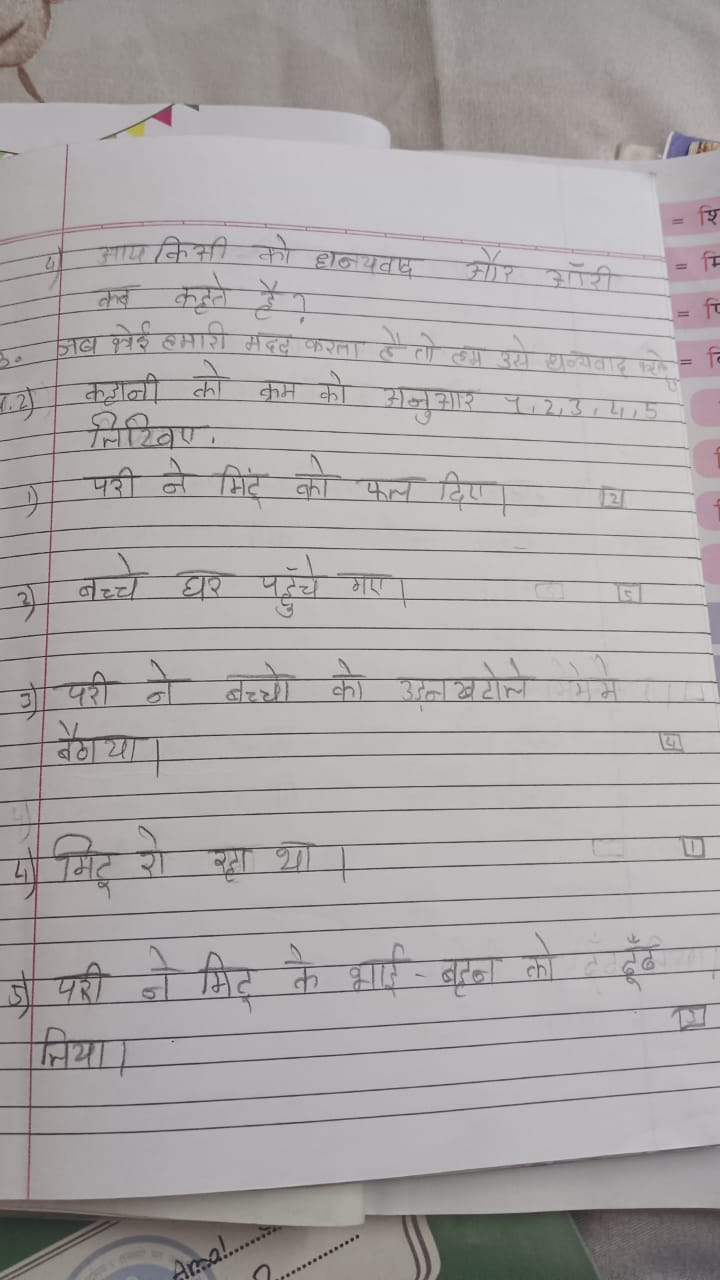 4) आप किसी को धन्यवाद और सॉरी
कब कहते है?
उ. जब कोई हमारी मदद करता है तो हम उसे धन्यवाद कहते
2) कहानी को क्रम को अनुसार 1,2,3,4,5
लिखिए.
1) परी ने मिंटू को फल दिए। 2
2) बच्चे घर पहुँचे गए। 5
3) परी ने बच्चो को उड़नखटोले मे
बैठाया। 4
4) मिंटू रो रहा था। 1
5) परी ने मिंटू के भाई-बहन को ढूँढ
लिया। 3
= शि
= मि
= पि
Amal